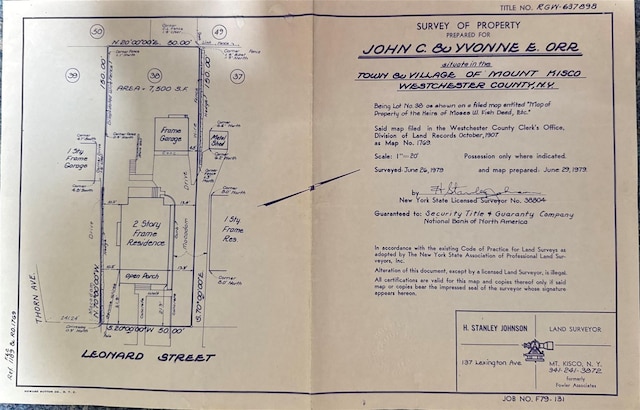 TITLE NO. RGW-637898
SURVEY OF PROPERTY
PREPARED FOR
JOHN C. & YVONNE E. ORR
situate in the
TOWN & VILLAGE OF MOUNT KISCO
WESTCHESTER COUNTY, N.Y.
Being Lot No. 38 as shown on a filed map entitled "Map of
Property of the Heirs of Moses W. Fish Deed, Etc."
Said map filed in the Westchester County Clerk's Office,
Division of Land Records October, 1907
as Map No. 1769
Scale: 1"=20' Possession only where indicated.
Surveyed: June 26, 1979 and map prepared: June 29, 1979.
by H. Stanley Johnson
New York State Licensed Surveyor No. 38804
Guaranteed to: Security Title & Guaranty Company
National Bank of North America
In accordance with the existing Code of Practice for Land Surveys as
adopted by The New York State Association of Professional Land Sur-
veyors, Inc.
Alteration of this document, except by a licensed Land Surveyor, is illegal.
All certifications are valid for this map and copies thereof only if said
map or copies bear the impressed seal of the surveyor whose signature
appears hereon.
H. STANLEY JOHNSON
LAND SURVEYOR
137 Lexington Ave.
MT. KISCO, N. Y.
941-241-3872
formerly
Fowler Associates
JOB NO. F79-131
50
49
N 20°00'00"E 50.00'
150.00'
150.00'
39
38
37
AREA = 7,500 S.F.
Frame
Garage
Metal
Shed
1 Sty
Frame
Garage
Drive
2 Story
Frame
Residence
Macadam
1 Sty
Frame
Res.
Drive
Open Porch
N.70°00'00"W
S.70°00'00"E
THORN AVE.
S.20°00'00"W 50.00'
LEONARD STREET